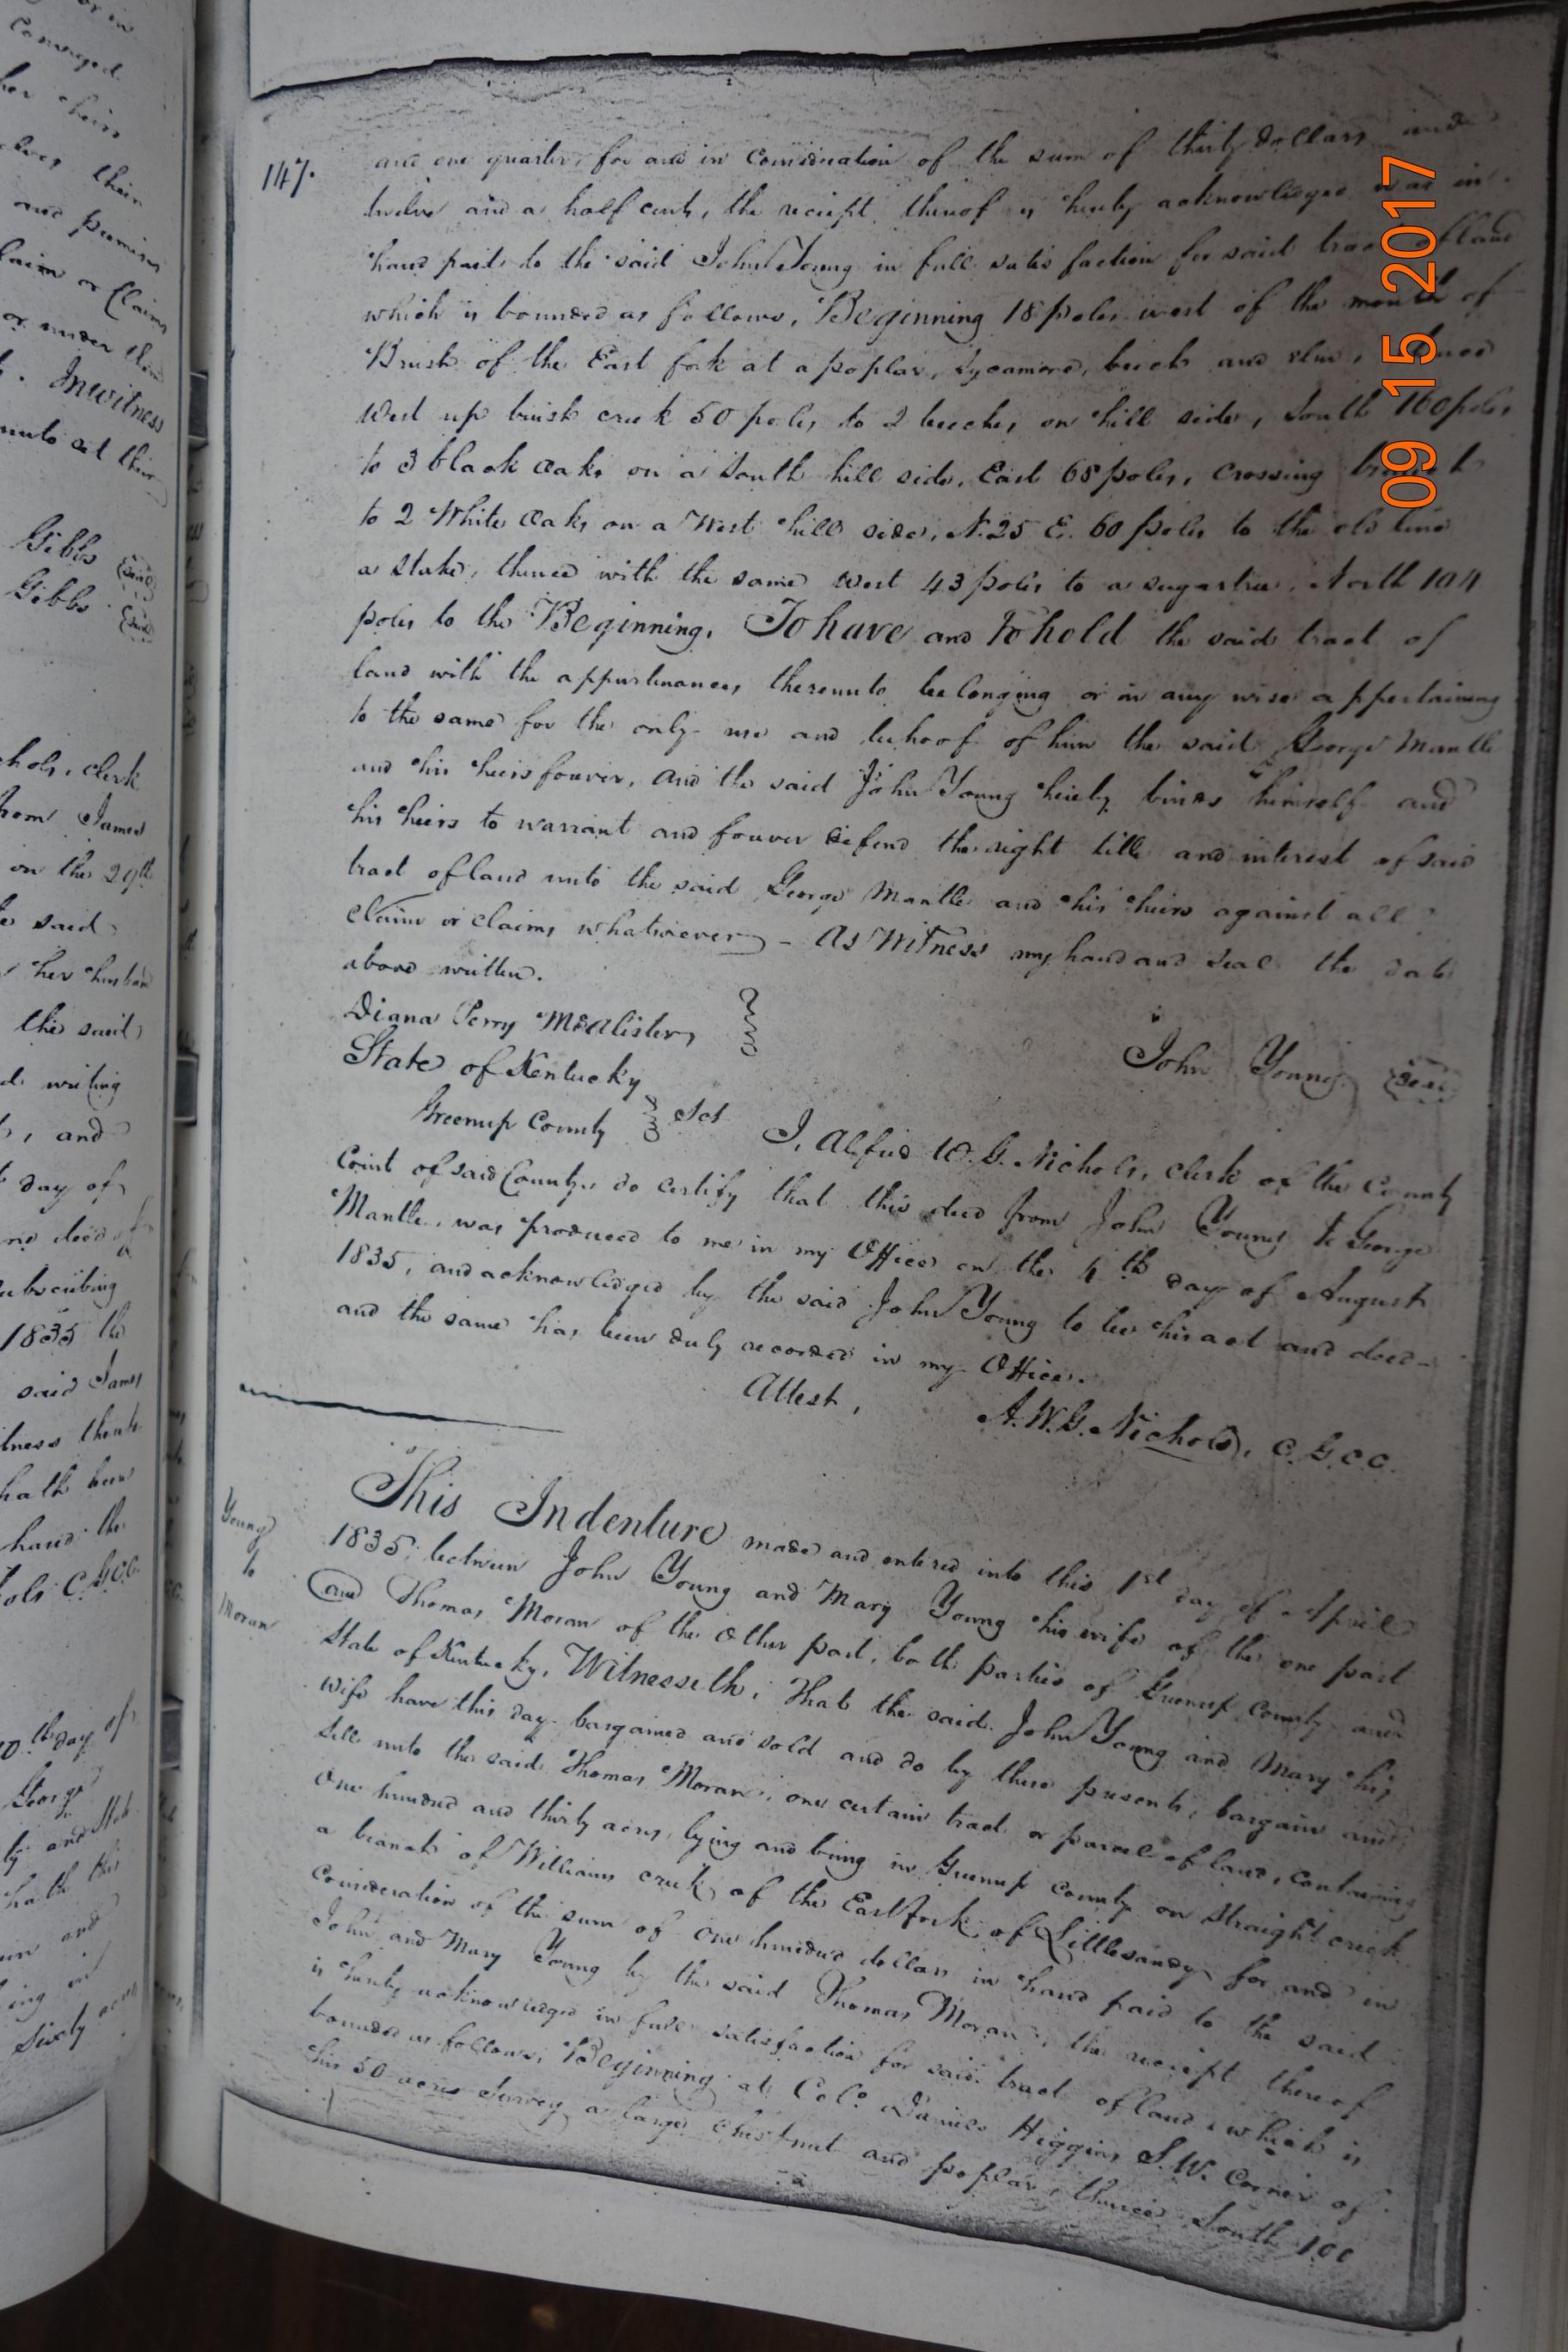 or in
Conveyed.
her heirs
their
and premises
claim or Claims
or under them
Inwitness
unto set their
Gibbs Seal
Gibbs Seal
chols, clerk
from James
on the 29th
said
her husband
the said
writing
, and
day of
deed
subscribing
1835 the
said James
hath been
hand the
day of
George
ty and State
hath this
and
ing on
Sixly acres
147.
and one quarter, for and in consideration of the sum of thirty dollars and
twelve and a half cents, the reciept thereof is hereby acknowledged was in
hand paid to the said John Young in full satisfaction for said tract of land
which is bounded as follows, Beginning 18 poles west of the mouth of
Brush of the East fork at a poplar, Sycamore, beech and elm, thence
West up brush creek 50 poles to 2 beeches on hill side, South 160 poles
to 3 black oaks on a South hill side, East 68 poles, crossing
to 2 White Oaks on a West hill side, N. 25 E. 60 poles to the old line
a stake, thence with the same West 43 poles to a sugartree, North 104
poles to the Beginning. To have and to hold the said tract of
land with the appurtenances thereunto belonging or in any wise appertaining
to the same for the only use and behoof of him the said George Mantle
and his heirs forever, and the said John Young hereby binds himself and
his heirs to warrant and forever defend the right title and interest of said
tract of land unto the said George Mantle and his heirs against all
claim or claims whatsoever - As Witness my hand and seal the date
above written.
Diana Perry McAlister,
John Young Seal
State of Kentucky
Greenup County Sct I, Alfred W. G. Nichols, clerk of the County
Court of said County, do certify that this deed from John Young to George
Mantle, was produced to me in my Office on the 4th day of August
1835, and acknowledged by the said John Young to be his act and deed -
and the same has been duly recorded in my Office.
Attest, A. W. G. Nichols, C. G. C. C.
Young
to
Moran
This Indenture made and entered into this 1st day of April
1835, between John Young and Mary Young his wife of the one part
and Thomas Moran of the Other part, both parties of Greenup County and
State of Kentucky, Witnesseth, That the said John Young and Mary his
wife have this day bargained and sold and do by these presents, bargain and
Sell unto the said Thomas Moran, one certain tract or parcel of land, containing
One hundred and thirty acres, lying and being in Greenup county on Straight creek
a branch of Williams creek of the East fork of Littlesandy for and in
Consideration of the sum of One hundred dollars in hand paid to the said
John and Mary Young by the said Thomas Moran, the reciept thereof
is hereby acknowledged in full satisfaction for said tract of land, which is
bounded as follows, Beginning at Colo. Daniel Higgins S. W. Corner of
his 50 acres Survey a large chestnut and poplar, thence South 100
09 15 2017